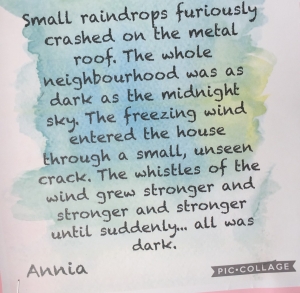 Small raindrops furiously
crashed on the metal
roof. The whole
neighbourhood was as
dark as the midnight
sky. The freezing wind
entered the house
through a small, unseen
crack. The whistles of the
wind grew stronger and
stronger and stronger
until suddenly... all was
dark.
Annia
PIC•COLLAGE